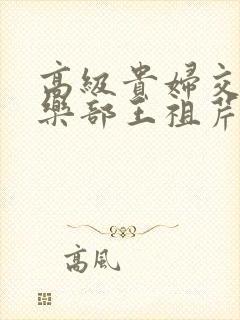 高級貴婦交
樂部王祖芹
高風